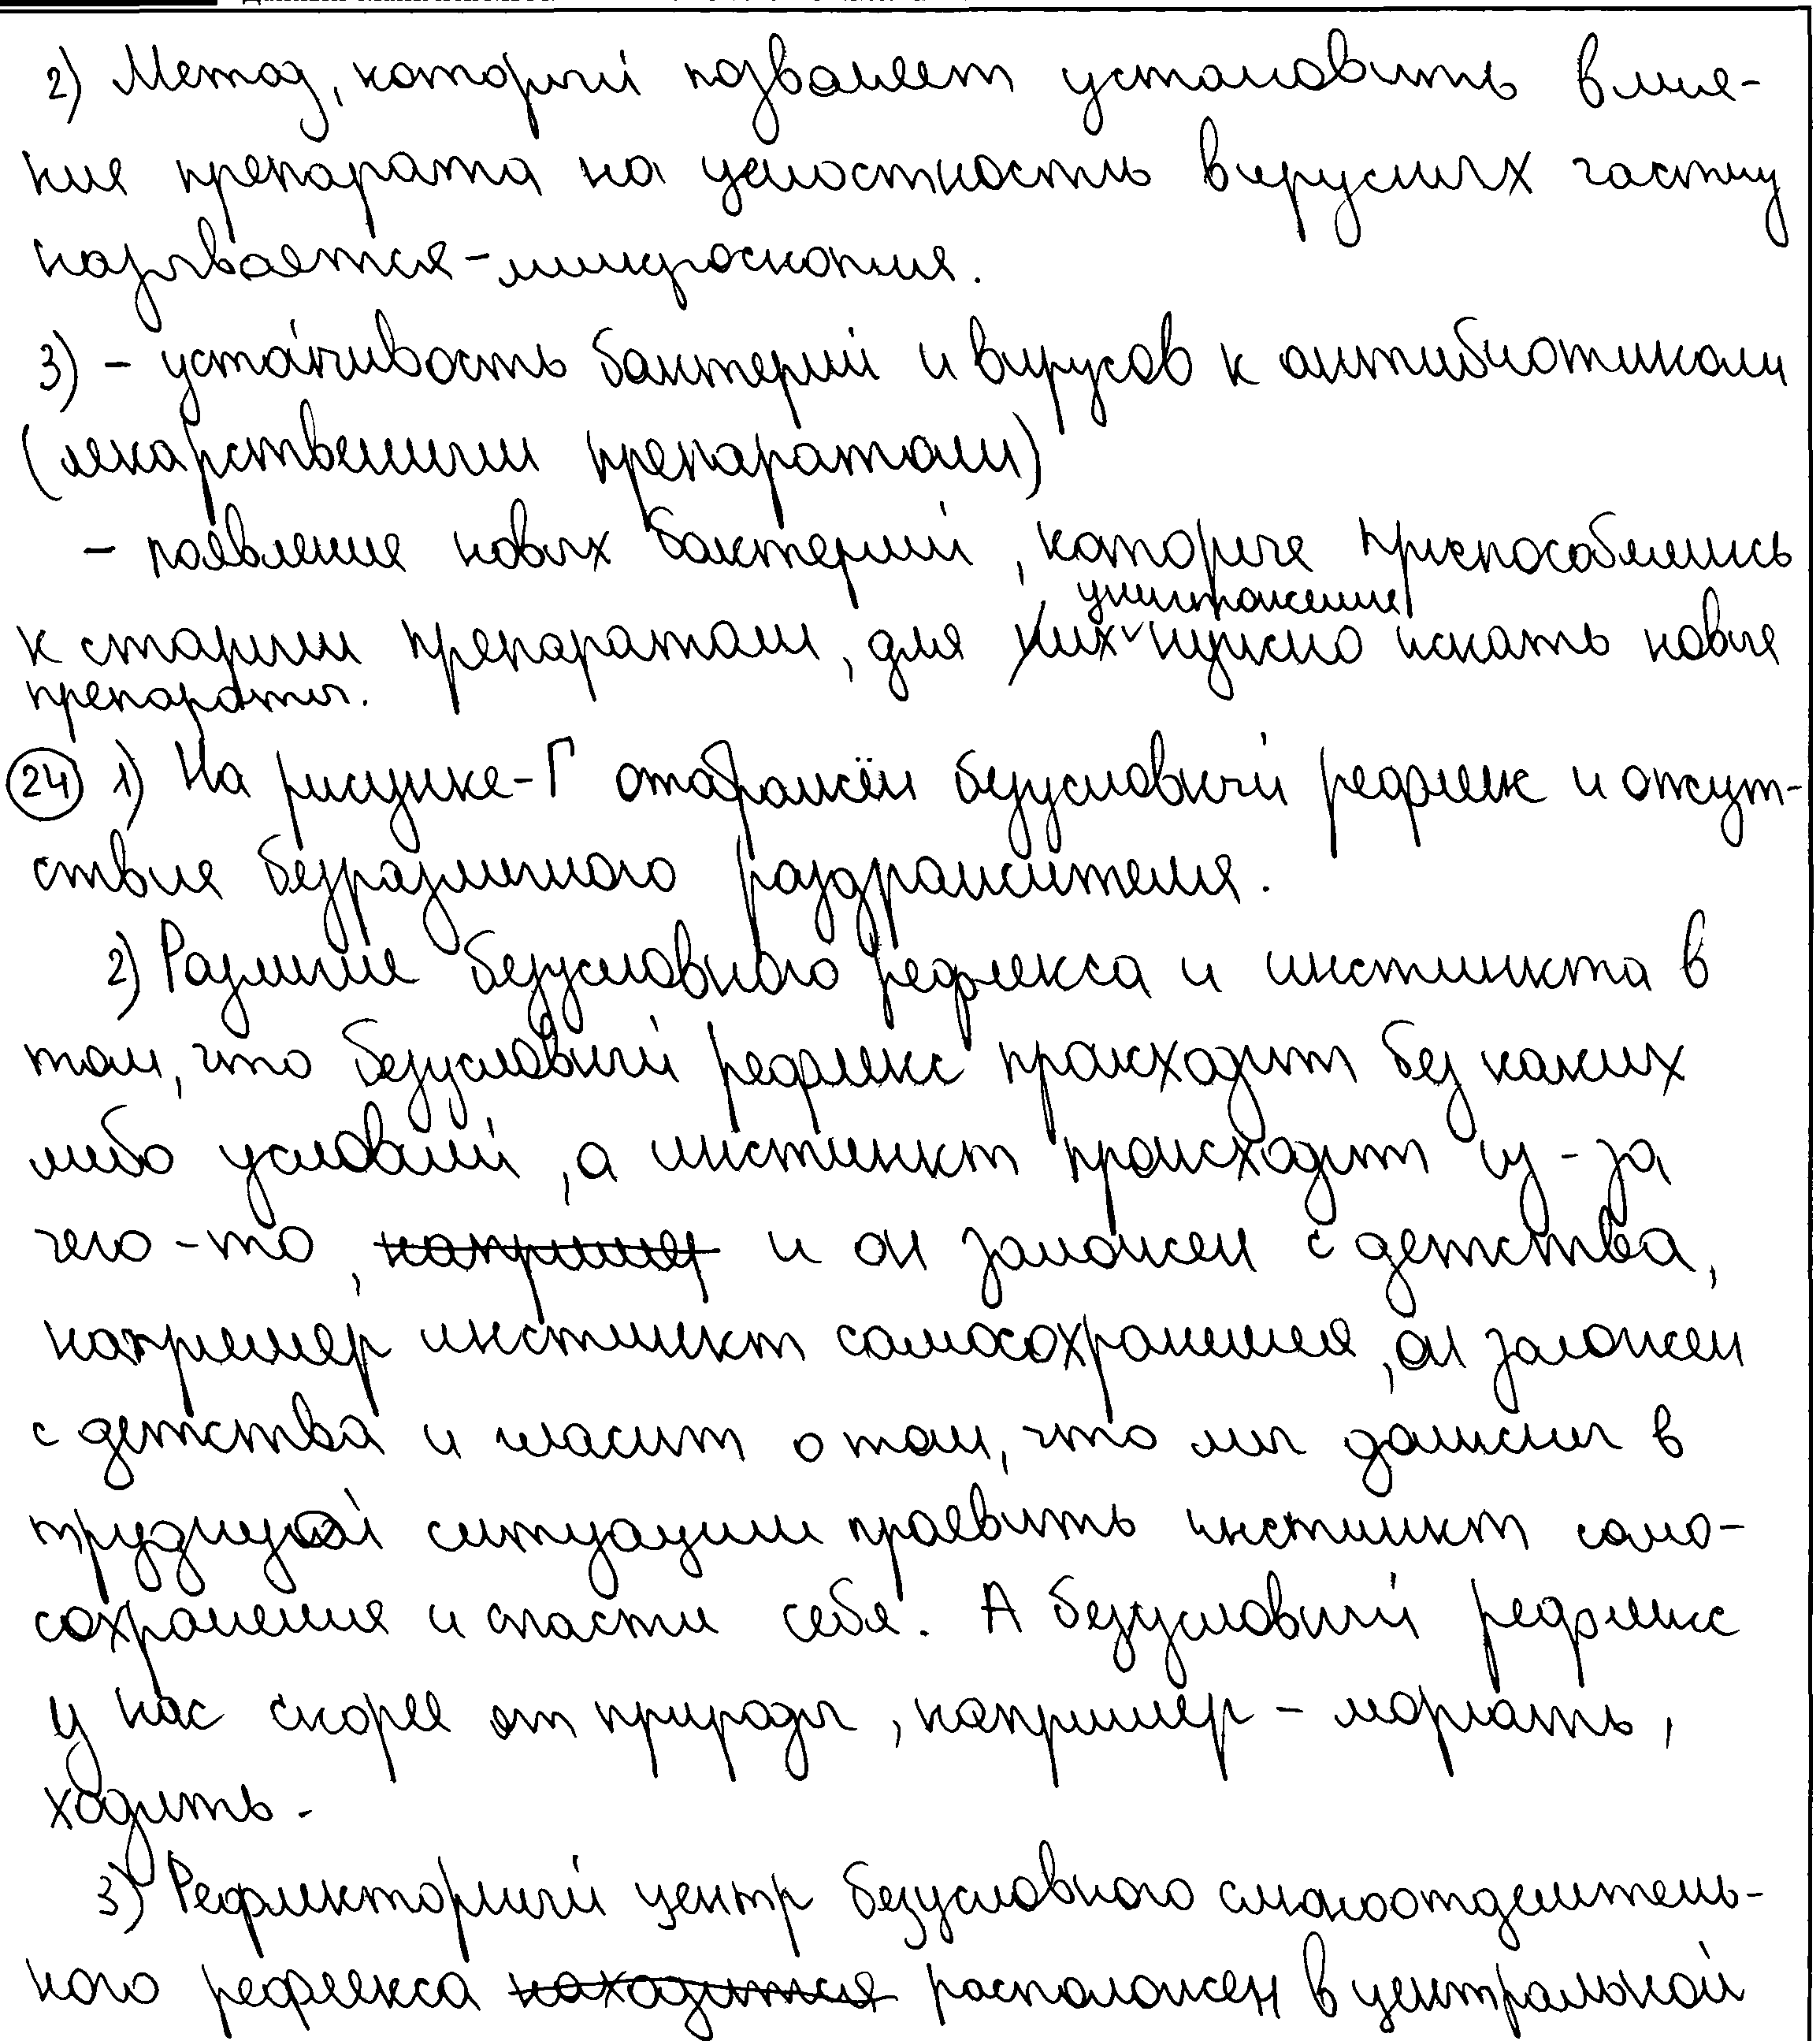 2) Метод, который позволяет установить влия-
ние препарата на целостность вирусных частиц
называется - микроскопия.
3) - устойчивость бактерий и вирусов к антибиотикам
(лекарственным препаратам)
- появление новых бактерий, которые приспособились
уничтожение
к старым препаратам, для их нужно искать новые
препараты.
24 1) На рисунке - Г отображён безусловный рефлекс и отсут-
ствие безразличного раздражителя.
2) Различие безусловного рефлекса и инстинкта в
том, что безусловный рефлекс происходит без каких
либо условий, а инстинкт происходит из-за
чего-то, например и он заложен с детства,
например инстинкт самосохранения, он заложен
с детства и гласит о том, что мы должны в
трудной ситуации проявить инстинкт само-
сохранения и спасти себя. А безусловный рефлекс
у нас скорее от природы, например - моргать,
ходить.
3) Рефлекторный центр безусловного слюноотделитель-
ного рефлекса находится расположен в центральной